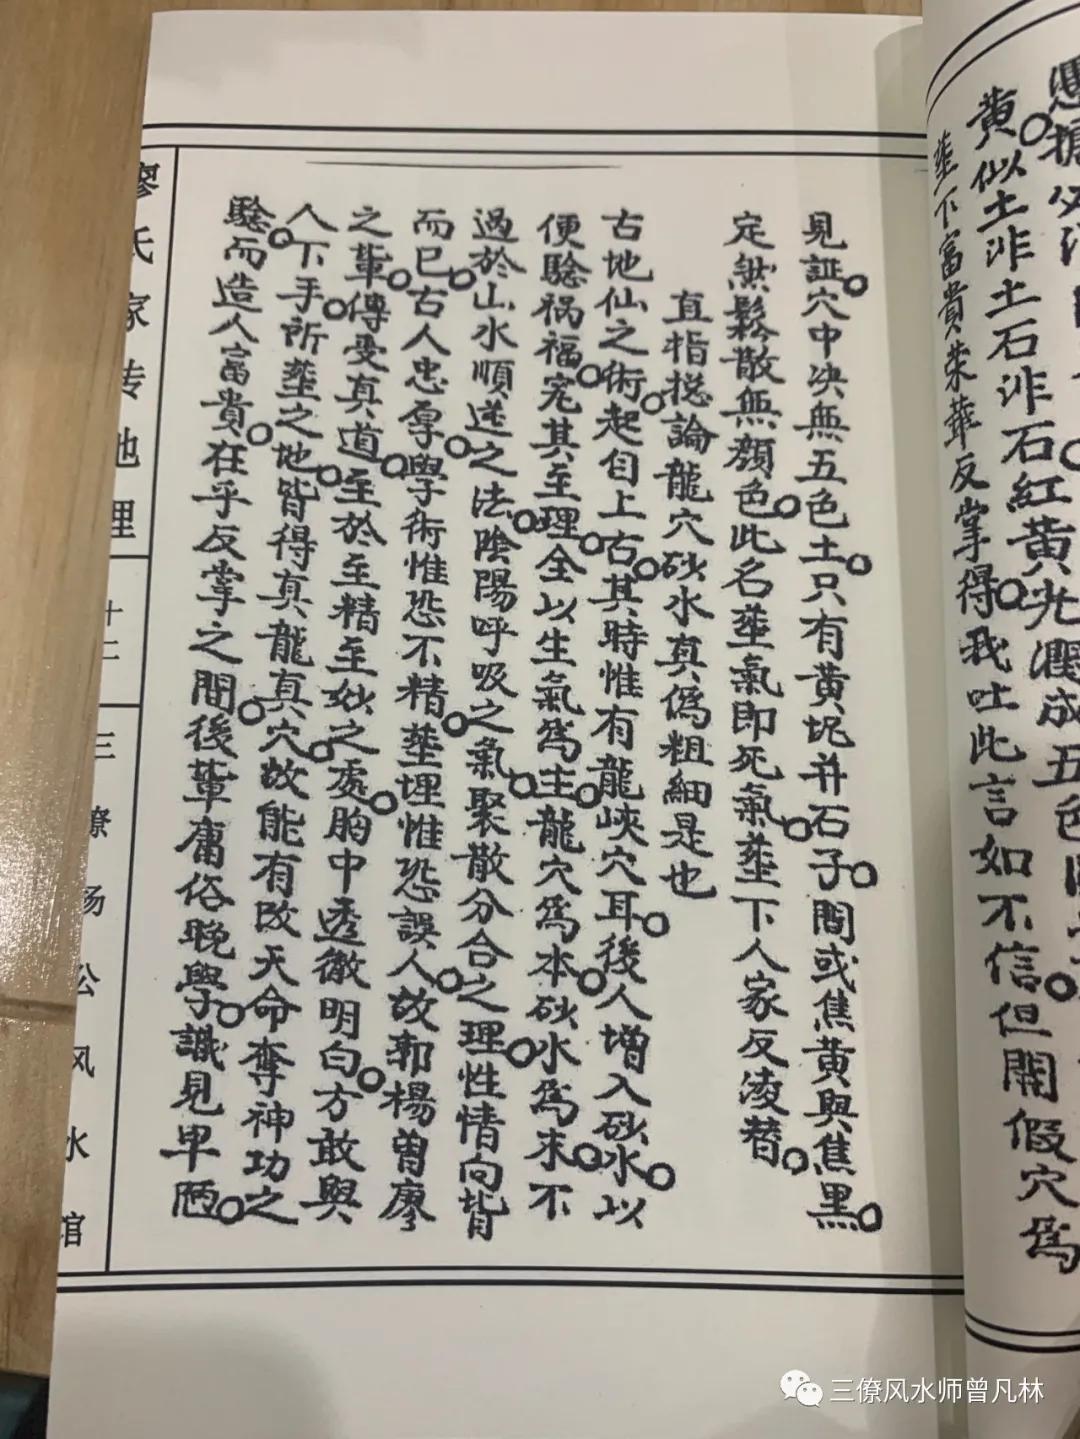 黃似土汼土石汼石紅黃光潤成五色
塟下富貴荣華反掌得我吐此言如不信但開假穴為
見証穴中决無五色土只有黃坭并石子間或焦黃與焦黑
定然鬆散無顏色此名塟氣即死氣塟下人家反凌替
直指捴論龍穴砂水真偽粗細是也
古地仙之術起自上古其時惟有龍峽穴耳後人增入砂水以
便騐祸福宪其至理全以生氣為主龍穴為本砂水為末不
過於山水順逆之法陰陽呼吸之氣聚散分合之理性情向背
而已古人忠厚學術惟恐不精塟埋惟恐誤人故郭楊曾廖
之輩傳受真道至於至精至妙之處胸中透徹明白方敢與
人下手所塟之地皆得真龍真穴故能有改天命奪神功之
騐而造人富貴在乎反掌之間後輩庸俗晚學識見卑陋
廖氏家传地理
十二
三僚杨公风水馆
三僚风水师曾凡林